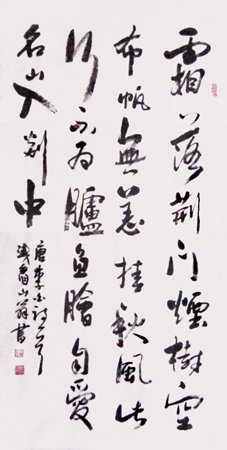 霜落荊門煙樹空
布帆無恙挂秋風此
行不為鱸魚膾自愛
名山入剡中
唐李白詩
山翁書